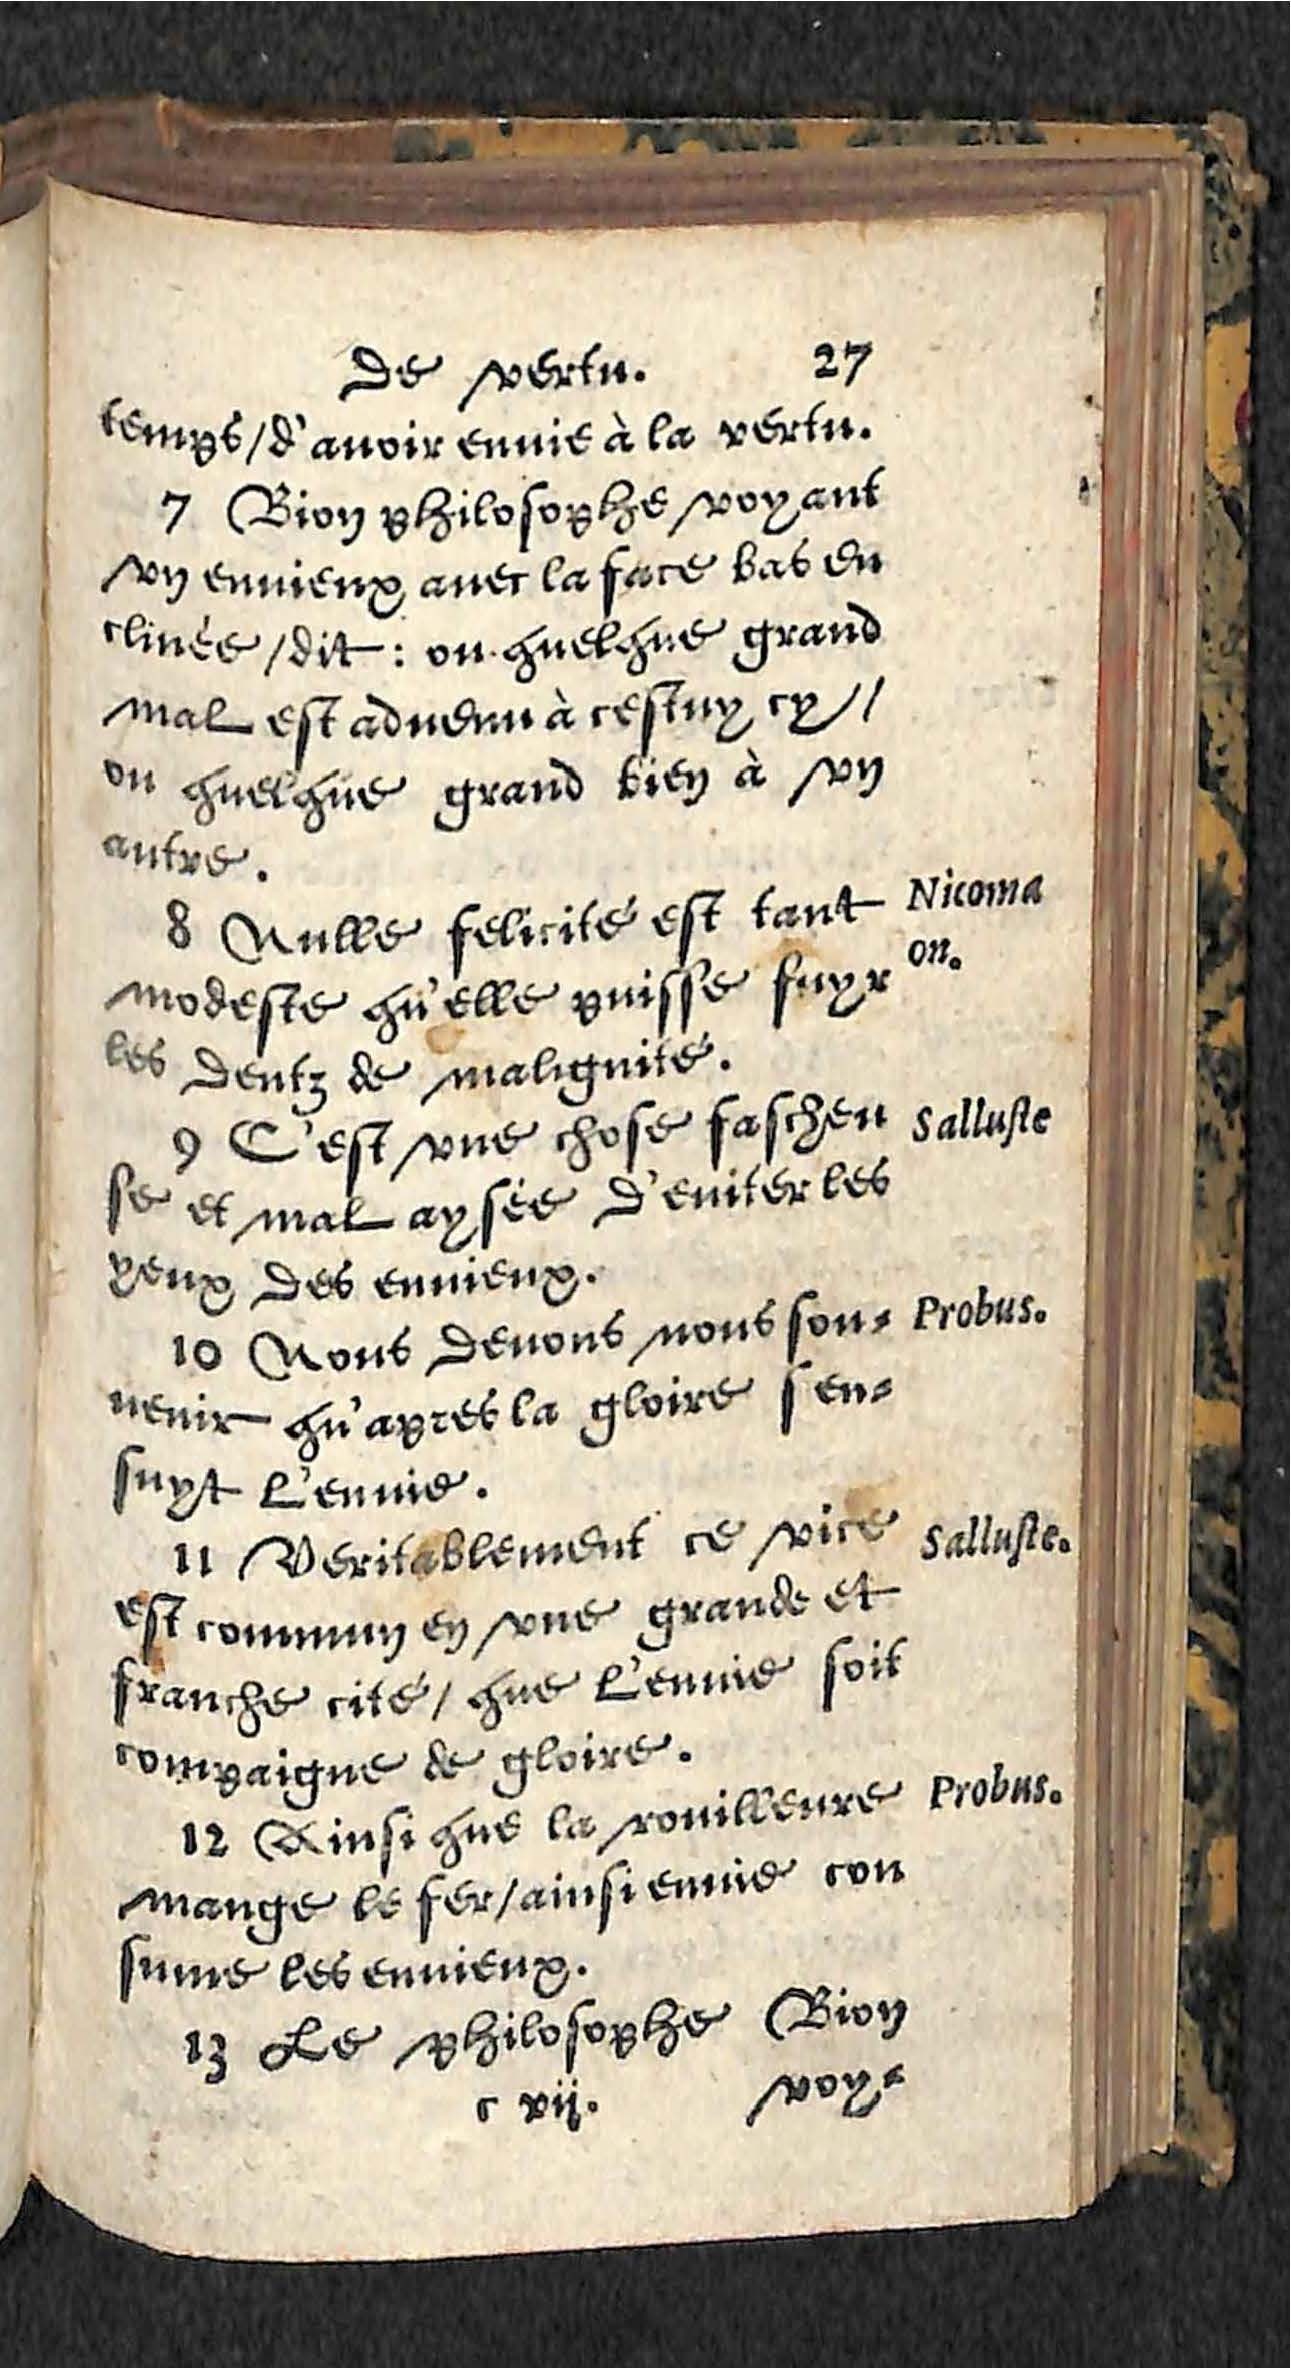 De vertu. 27
temps/d'auoir enuie à la vertu.
7 Bion philosophe voyant
vn enuieux auec la face bas en
clinée/dit: ou quelque grand
mal est aduenu à cestuy cy//
ou quelque grand bien à vn
autre.
8 Nulle felicité est tant
Nicoma
on.
modeste qu'elle puisse fuyr
les dentz de malignité.
9 C'est vne chose fascheu
Salluste
se et mal aysée d'euiter les
yeux des enuieux.
10 Nous deuons nous sou-
Probus.
uenir qu'apres la gloire s'en-
suyt l'enuie.
11 Veritablement ce vice
Salluste.
est commun en vne grande et
franche cité/que l'enuie soit
compaigne de gloire.
12 Ainsi que la rouilleure
Probus.
mange le fer/ainsi enuie con
sume les enuieux.
13 Le philosophe Bion
c vij. voy-